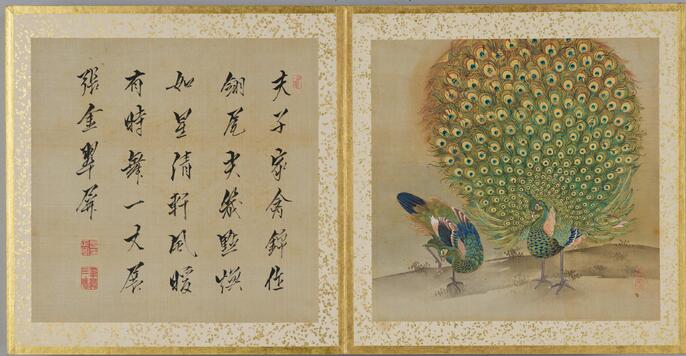 夫子家禽錦作
翎尾尖幾點煥
如星清軒風暖
有時舞一丈展
張金翠屏